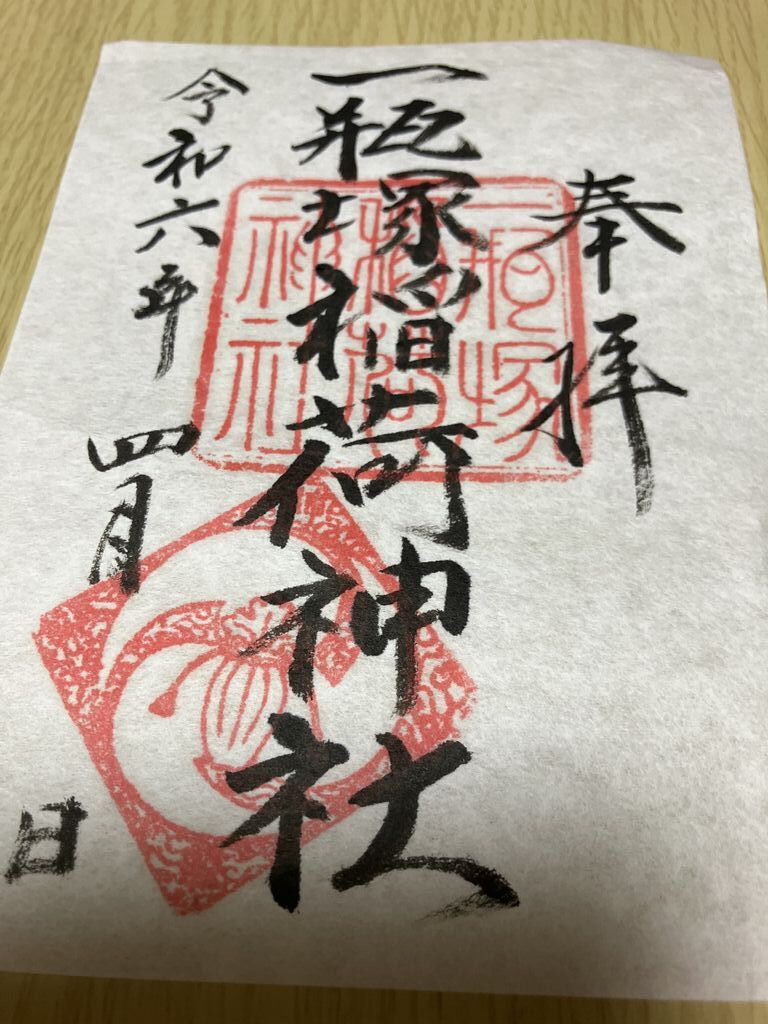 奉拝
一瓶塚稲荷神社
一瓶塚稲荷神社
令和六年
四月
日